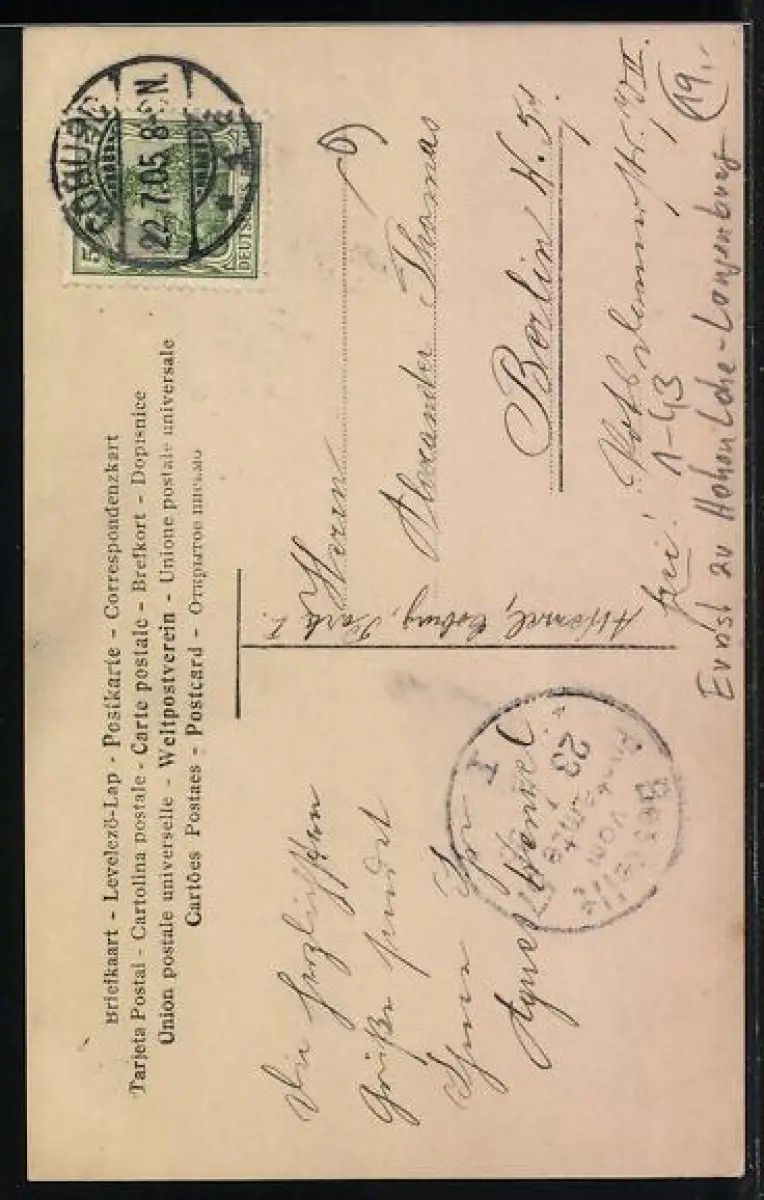 Briefkaart – Levelező-Lap – Postkarte – Correspondenzkart
Tarjeta Postal – Cartolina postale – Carte postale – Brefkort – Dopisnice
Union postale universelle – Weltpostverein – Unione postale universale
Cartões Postaes – Postcard – Открытое письмо
COBURG
22.7.05 8-9 N.
1
5
DEUTSCHES
Herrn
Alexander Thomas
Berlin W. 57.
Potsdamerstr.
frei!
1-43
Ernst zu Hohenlohe-Langenburg
19.-
Coburg,
Die herzlichsten
Grüße sendet
Ihnen Ihre
Agnes
23
7
VORM